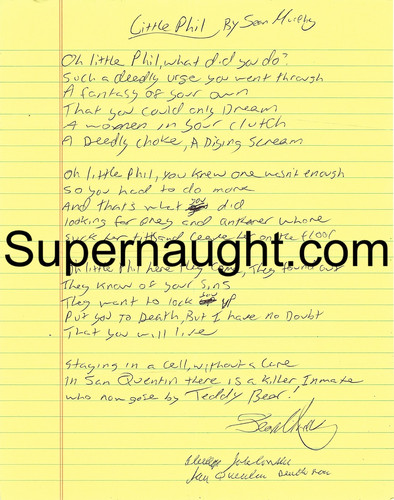 Little Phil By Sean Murphy
Oh little Phil, what did you do?
Such a deedly urge you went through
A fantasy of your own
That you could only Dream
A women in your clutch
A Deedly choke, A Diying Scream
Oh little Phil, you knew one wasn't enough
So you had to do more
And thats what you did
looking for prey and another whore
Suck her tits and leave her on the floor
Supernaught.com
Oh little Phil here they come, They found out
They know of your sins
They want to lock you up
Put you to Death, But I have no Doubt
That you will live
Staying in a cell, without a care
In San Quentin there is a killer Inmate
who now gose by Teddy Bear!
San Quentin Death row